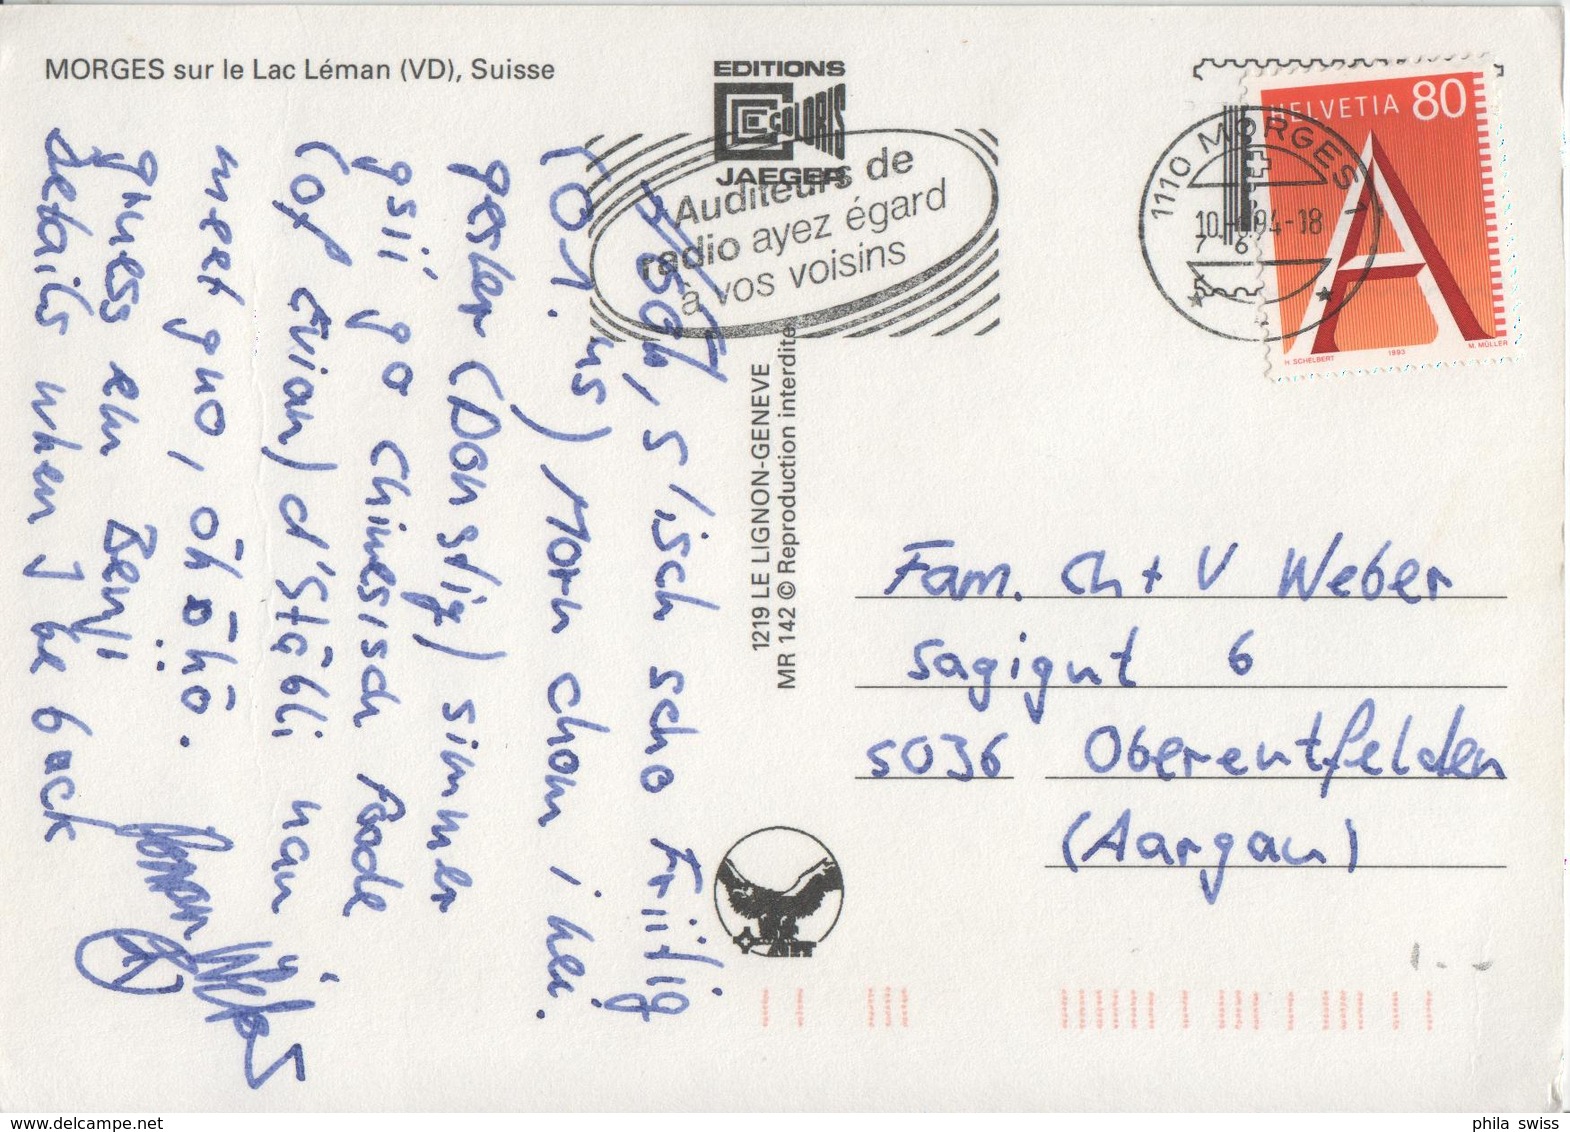 MORGES sur le Lac Léman (VD), Suisse
EDITIONS
COLORIS
JAEGER
Auditeurs de
radio ayez égard
à vos voisins
1110 MORGES 1
94-18
HELVETIA 80
H. SCHELBERT 1993 M. MÜLLER
1219 LE LIGNON-GENEVE
MR 142 © Reproduction interdite
s'isch scho Friitig
Morn chom i hei.
Gester (Donstig) simmer
gsii go Chinesisch
(of Evian) d'Stäbli han i
met gno, öhöhö.
gruess em Benji
Details when I be back
Fam. Ch + V Weber
Sagigut 6
5036 Oberentfelden
(Aargau)
phila swiss